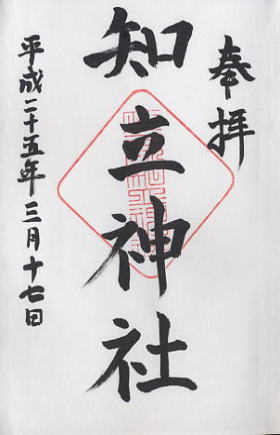 奉拝
知立神社
平成二十五年三月十七日